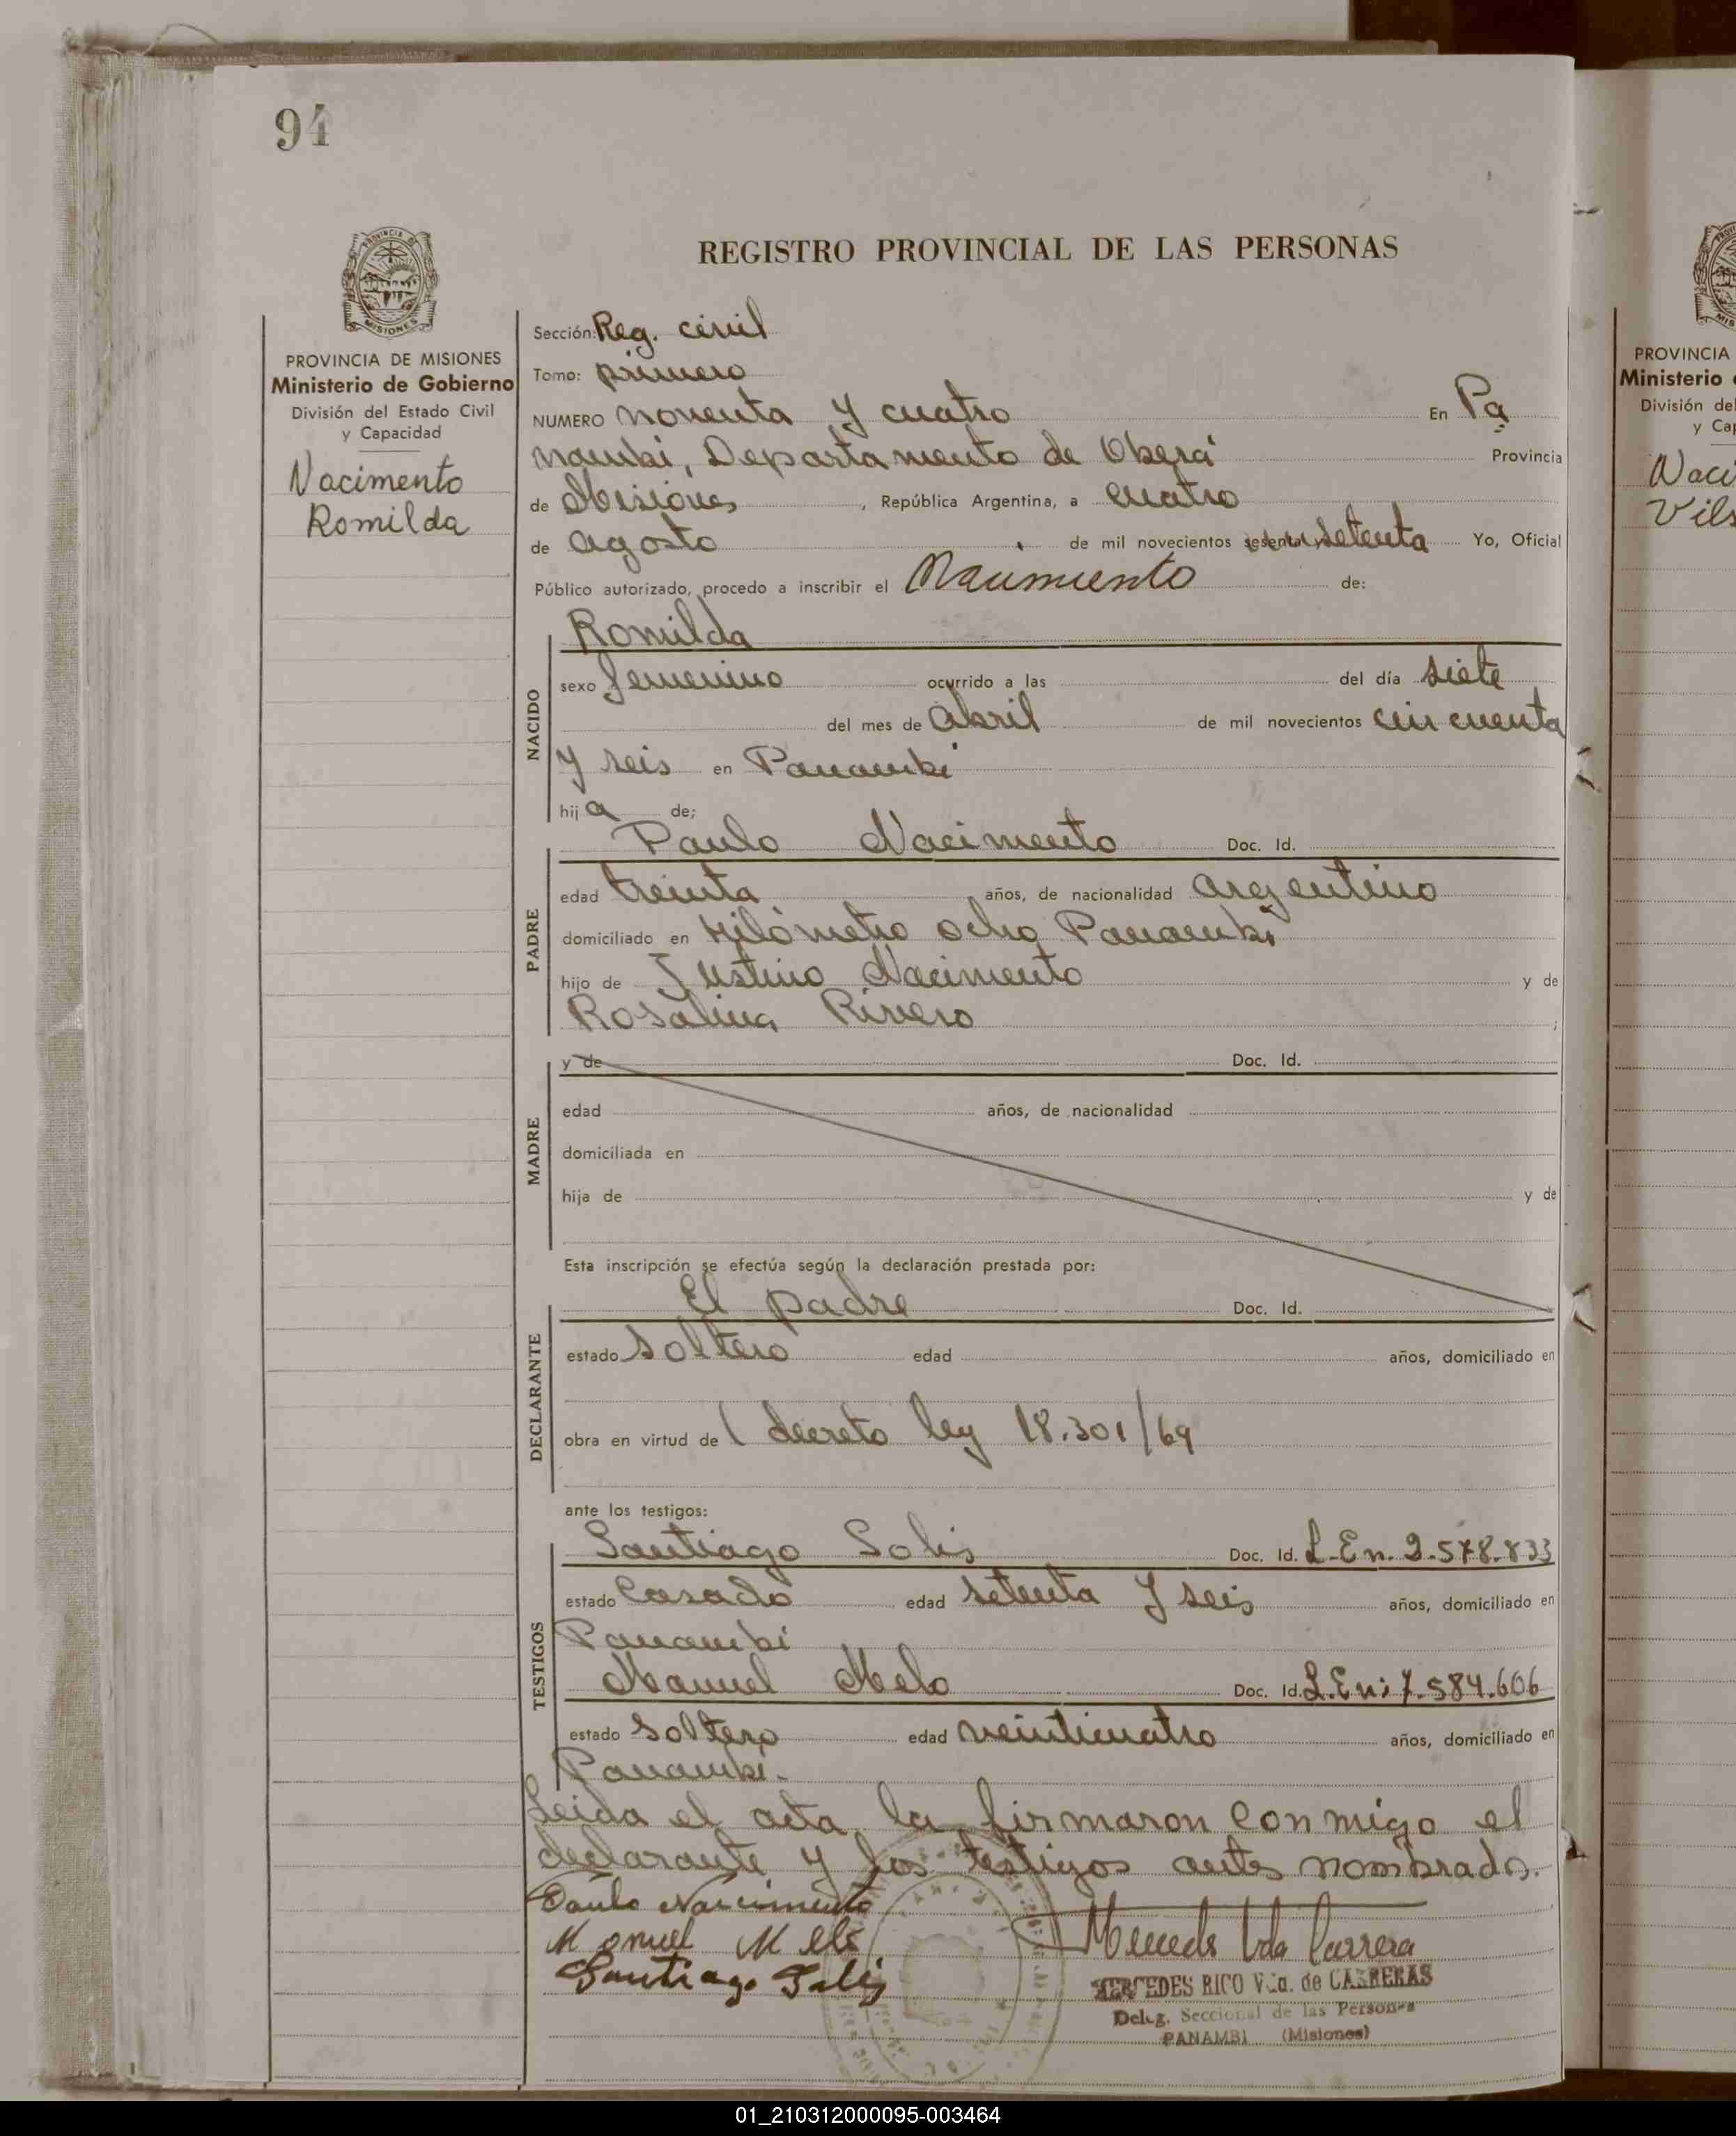 94
REGISTRO PROVINCIAL DE LAS PERSONAS
PROVINCIA DE MISIONES
Ministerio de Gobierno
División del Estado Civil
y Capacidad
Nacimento
Romilda
Sección: Reg. civil
Tomo: primero
NUMERO noventa y cuatro En Pa
nambi, Departamento de Oberá Provincia
de Misiones, República Argentina, a cuatro
de agosto de mil novecientos sesenta y setenta Yo, Oficial
Público autorizado, procedo a inscribir el Nacimiento de:
Romilda
NACIDO
sexo femenino ocurrido a las del día siete
del mes de abril de mil novecientos cincuenta
y seis en Panambi
hija de;
PADRE
Paulo Nacimento Doc. Id.
edad treinta años, de nacionalidad argentino
domiciliado en Kilómetro ocho Panambi
hijo de Justino Nacimento y de
Rosalina Rivero ;
MADRE
y de Doc. Id.
edad años, de nacionalidad
domiciliada en
hija de y de
Esta inscripción se efectúa según la declaración prestada por:
DECLARANTE
El padre Doc. Id.
estado soltero edad años, domiciliado en
obra en virtud de ( decreto ley 18.301/69
ante los testigos:
TESTIGOS
Santiago Solis Doc. Id. L.En. 2.578.833
estado casado edad setenta y seis años, domiciliado en
Panambi
Manuel Melo Doc. Id. L.En: 7.584.606
estado soltero edad veinticuatro años, domiciliado en
Panambi.
Leida el acta, la firmaron conmigo el
declarante y los testigos antes nombrado.
Paulo Nascimento
Manuel Melo
Santiago Solis
MERCEDES RICO Vda. de CARRERAS
Deleg. Seccional de las Personas
PANAMBI (Misiones)
PROVINCIA
Ministerio
División del
y Cap
Naci
Vils
01_210312000095-003464